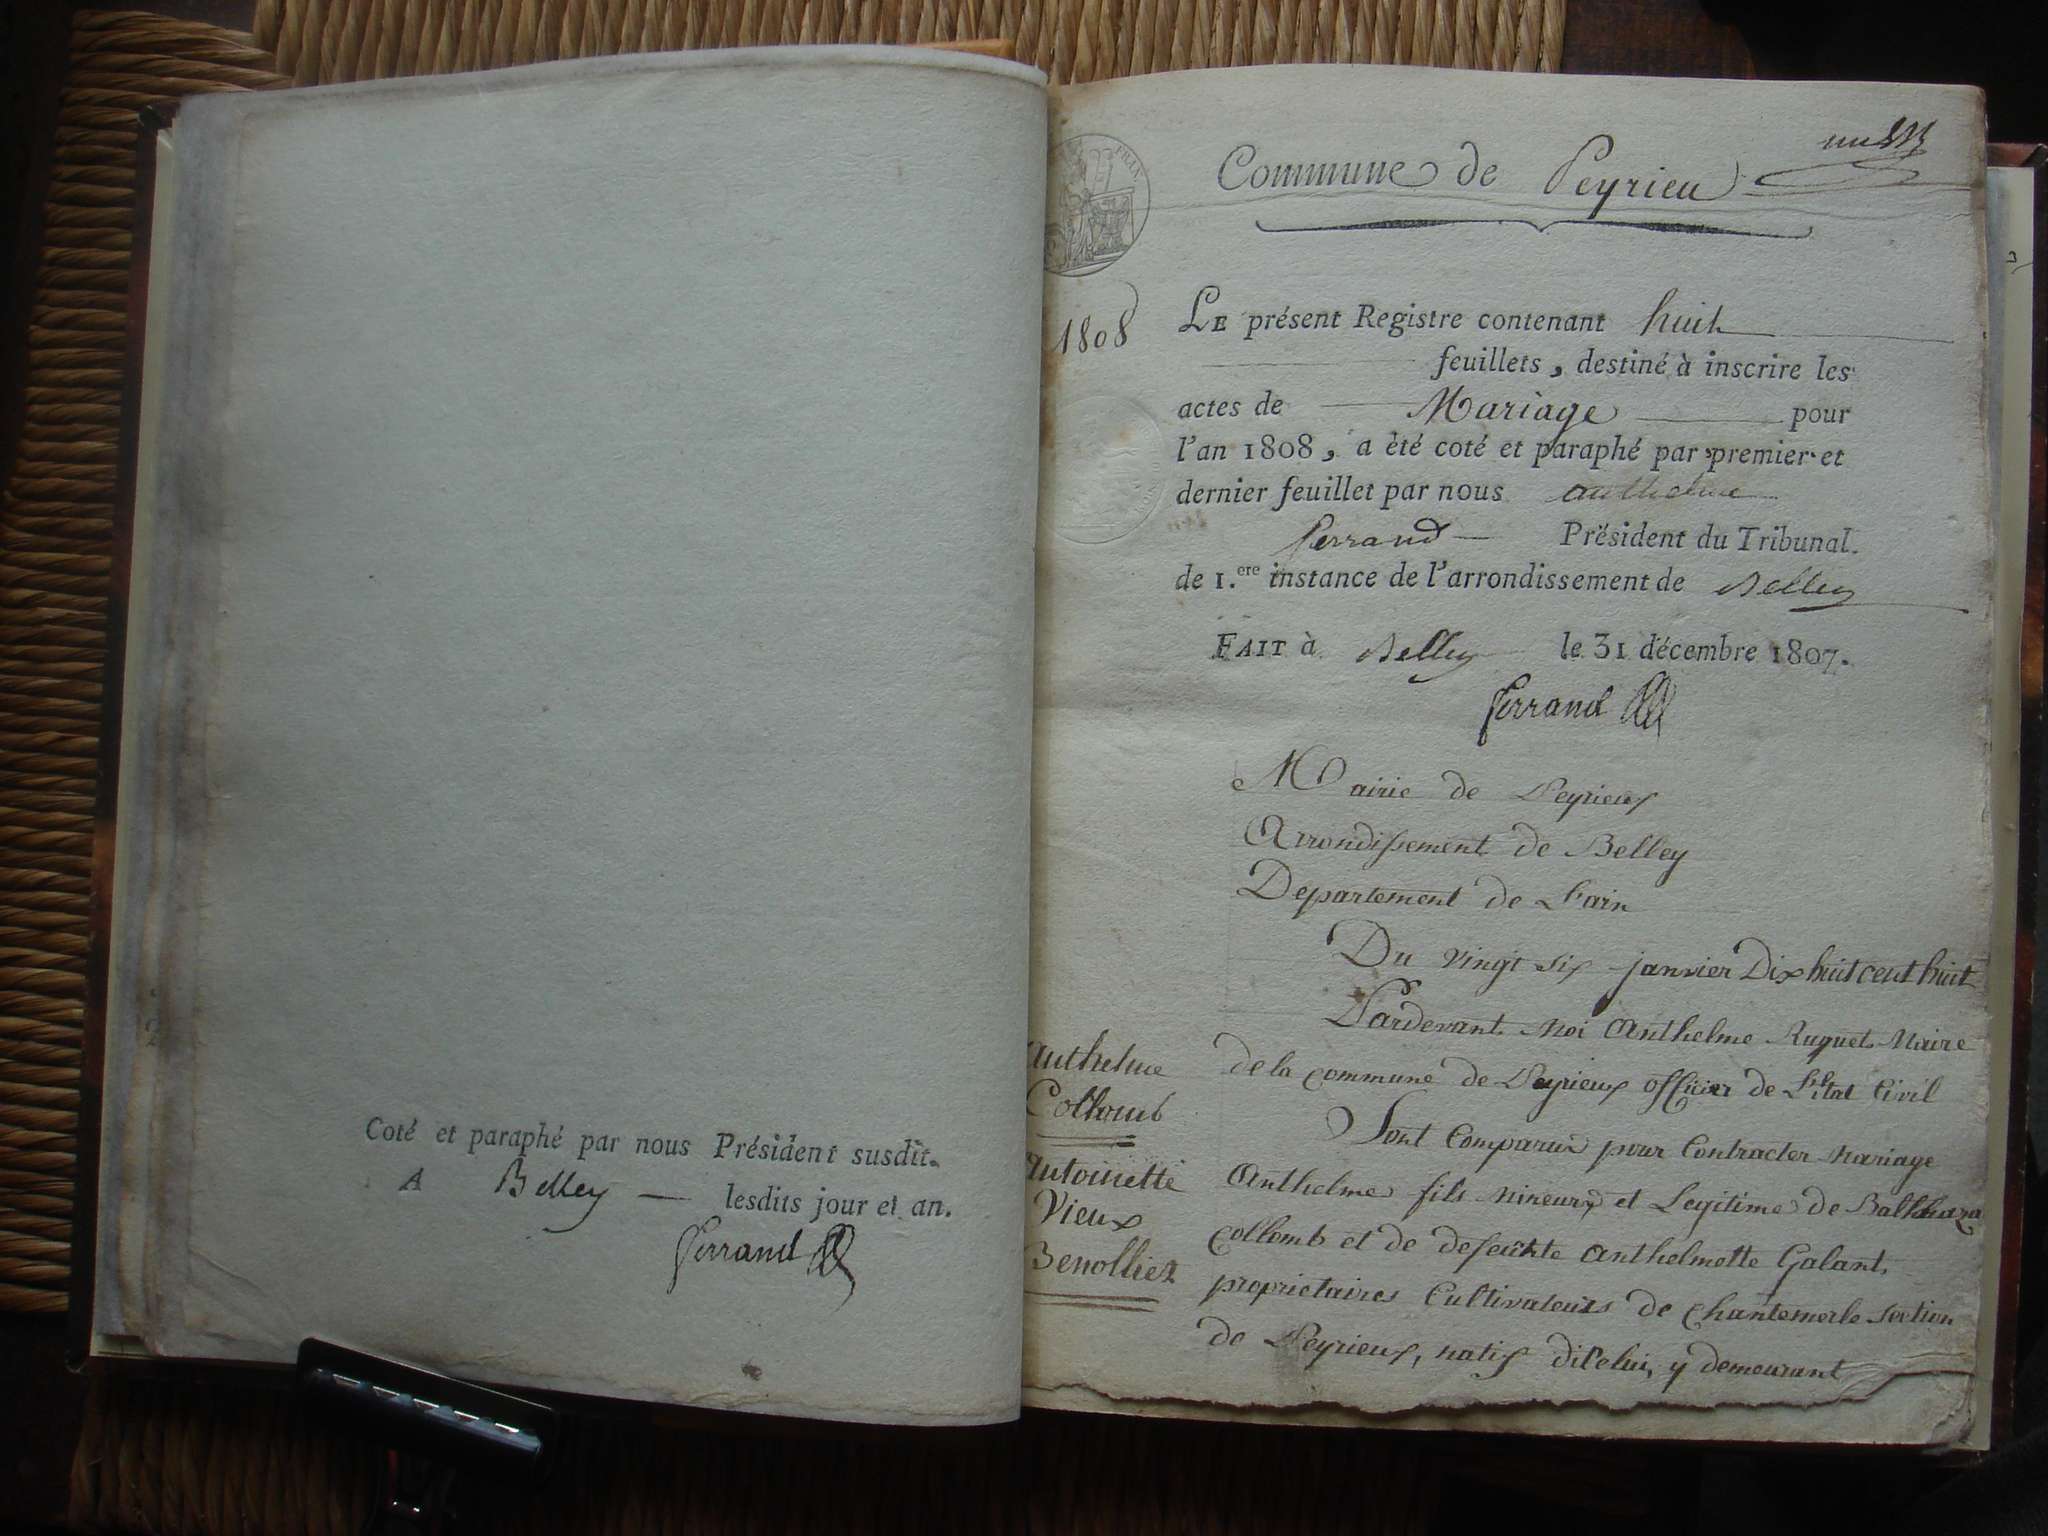 Coté et paraphé par nous Président susdit.
A Belley lesdits jour et an.
Ferrand
Commune de Peyrieu
FRAN
1808
LE présent Registre contenant huit
feuillets, destiné à inscrire les
actes de Mariage pour
l'an 1808, a été coté et paraphé par premier et
dernier feuillet par nous anthelme
ferrand Président du Tribunal
de 1.ere instance de l'arrondissement de Belley
FAIT à Belley le 31 décembre 1807.
ferrand
Mairie de Peyrieux
Arrondissement de Belley
Departement de L'ain
Du vingt six janvier Dix huit cent huit
Pardevant Moi Anthelme Ruguet Maire
de la commune de Peyrieux officier de L'Etat Civil
Sont Comparus pour Contracter Mariage
Anthelme fils mineur et Legitime de Balthaza
collomb et de defeunte Anthelmette Galant
proprietaires Cultivateurs de Chantemerle section
de Peyrieux, natif dicelui, y demeurant
Anthelme
Collomb
Antoinette
Vieux
Benolliez